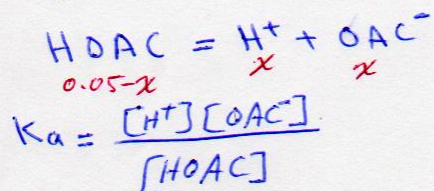 HOAC = H⁺ + OAC⁻
0.05-x x x
Ka = [H⁺][OAC⁻]
[HOAC]